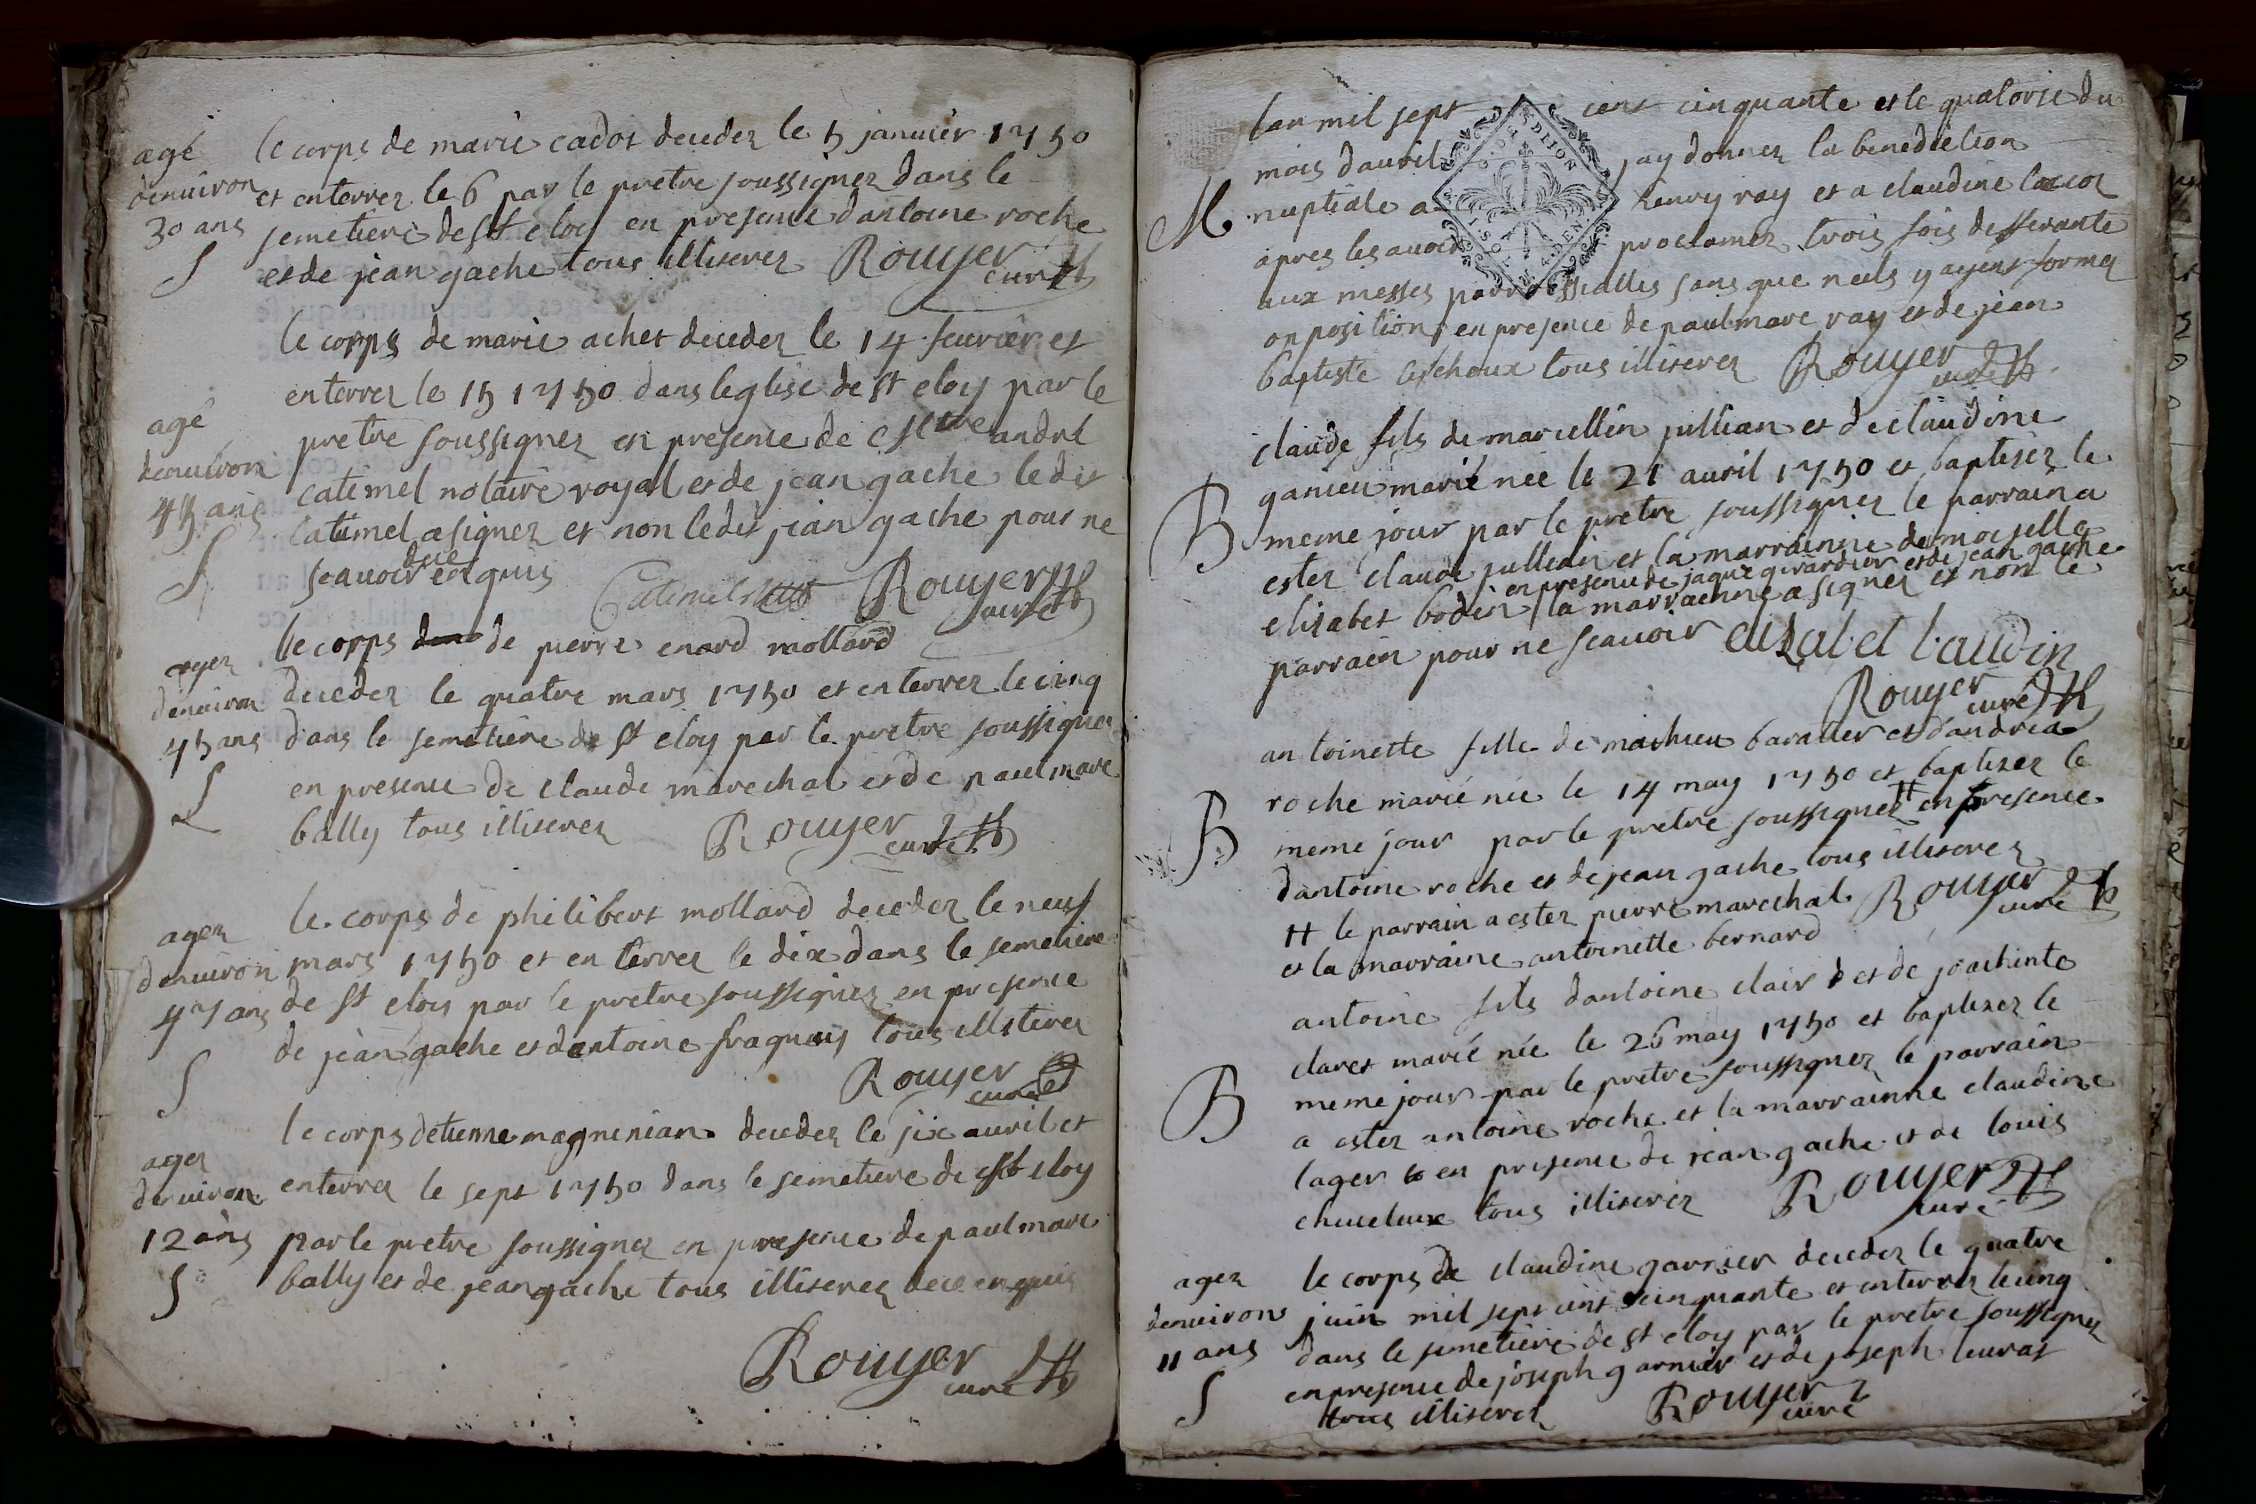 agé
denuiron
30 ans
S
le corps de marie cador deceder le 5 januier 1750
et enterrer le 6 par le pretre soussigner dans le
semetiere de St eloy en presence dantoine roche
et de jean gache tous illiterer Rouyer
curé
agé
denuiron
45 ans
S
le corps de marie achet deceder le 14 feurier et
enterrer le 15 1750 dans leglise de St eloy par le
pretre soussigner en presence de Mtre andre
catimel notaire royal et de jean gache le dit
catimel a signer et non le dit jean gache pour ne
scauoir enquis
Catimel Rouyer
curé
ager
denuiron
45 ans
S
le corps de pierre enard mollard
deceder le quatre mars 1750 et enterrer le cinq
dans le semetiere de St eloy par le pretre soussigner
en presence de claude marechal et de paul marc
bally tous illiterer Rouyer
curé
ager
denuiron
47 ans
S
le corps de philibert mollard deceder le neuf
mars 1750 et enterrer le dix dans le semetiere
de St eloy par le pretre soussigner en presence
de jean gache et dantoine tous illiterer
Rouyer
curé
ager
denuiron
12 ans
S
le corps detienne magninian deceder le six auril et
enterrer le sept 1750 dans le semetiere de St eloy
par le pretre soussigner en presence de paul marc
bally et de jean gache tous illiterer de ce enquis
Rouyer
curé
M
lan mil sept cent cinquante et le quatorse du
mois dauril jay donner la benediction
nuptiale a henry ray et a claudine
apres les auoir proclamer trois fois
aux messes parroissialles sans que nuls y ayent former
opposition en presence de paul marc ray et de jean
baptiste tous illiterer Rouyer
curé
B
claude fils de marcellin jullian et de claudine
ganieu marié née le 21 auril 1750 et baptiser le
meme jour par le pretre soussigner le parrain a
ester claude jullian et la marrainne demoiselle
en presence de jaque girardier et de jean gache
elisabet bodin la marrainne a signer et non le
parrain pour ne scauoir elisabet baudin
Rouyer
curé
B
antoinette fille de mathieu baraller et dandréa
roche marié née le 14 may 1750 et baptiser le
meme jour par le pretre soussigner # en presence
dantoine roche et de jean gache tous illiterer
# le parrain a ester pierre marechal Rouyer
curé
et la marraine antoinette bernard
B
antoine fils dantoine clair et de joachinte
claret marié née le 26 may 1750 et baptiser le
meme jour par le pretre soussigner le parrain
a ester antoine roche et la marrainne claudine
lager en presence de jean gache et de louis
tous illiterer Rouyer
curé
ager
denuiron
11 ans
S
le corps de claudine garnier deceder le quatre
juin mil sept cent cinquante et enterrer le cinq
dans le semetiere de St eloy par le pretre soussigner
en presence de joseph garnier et de joseph
tous illiterer Rouyer
curé